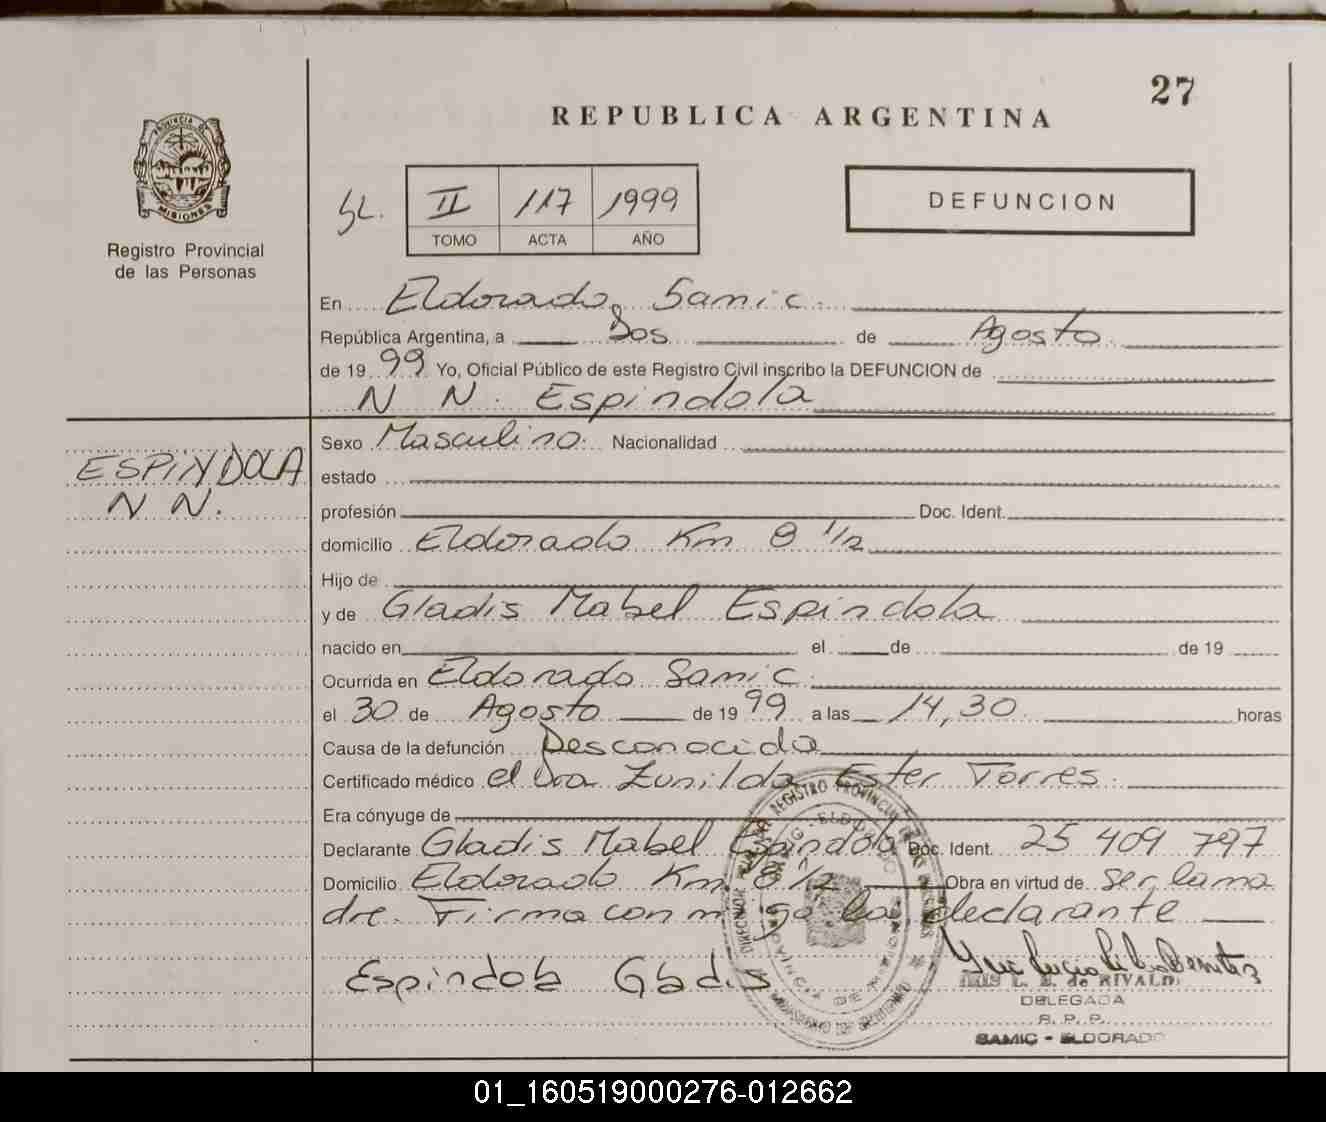 27
REPUBLICA ARGENTINA
PROVINCIA D
MISIONES
Registro Provincial
de las Personas
II 117 1999
TOMO ACTA AÑO
DEFUNCION
En Eldorado, Samic.
República Argentina, a Dos de Agosto
de 19 99 Yo, Oficial Público de este Registro Civil inscribo la DEFUNCION de
N N. Espindola
ESPINDOLA
N N.
Sexo Masculino. Nacionalidad
estado
profesión Doc. Ident.
domicilio Eldorado Km 8 1/2
Hijo de
y de Gladis Mabel Espindola
nacido en el de de 19
Ocurrida en Eldorado Samic.
el 30 de Agosto de 19 99 a las 14,30 horas
Causa de la defunción Desconocida
Certificado médico el Dra Zunilda Ester Torres.
Era cónyuge de
Declarante Gladis Mabel Espindola Doc. Ident. 25 409 797
Domicilio Eldorado Km. 8 1/2 Obra en virtud de ser la ma
dre. Firma conmigo la declarante
Espindola Gladis
L. B. de RIVALDI
DELEGADA
R. P. P.
SAMIC - ELDORADO
01_160519000276-012662